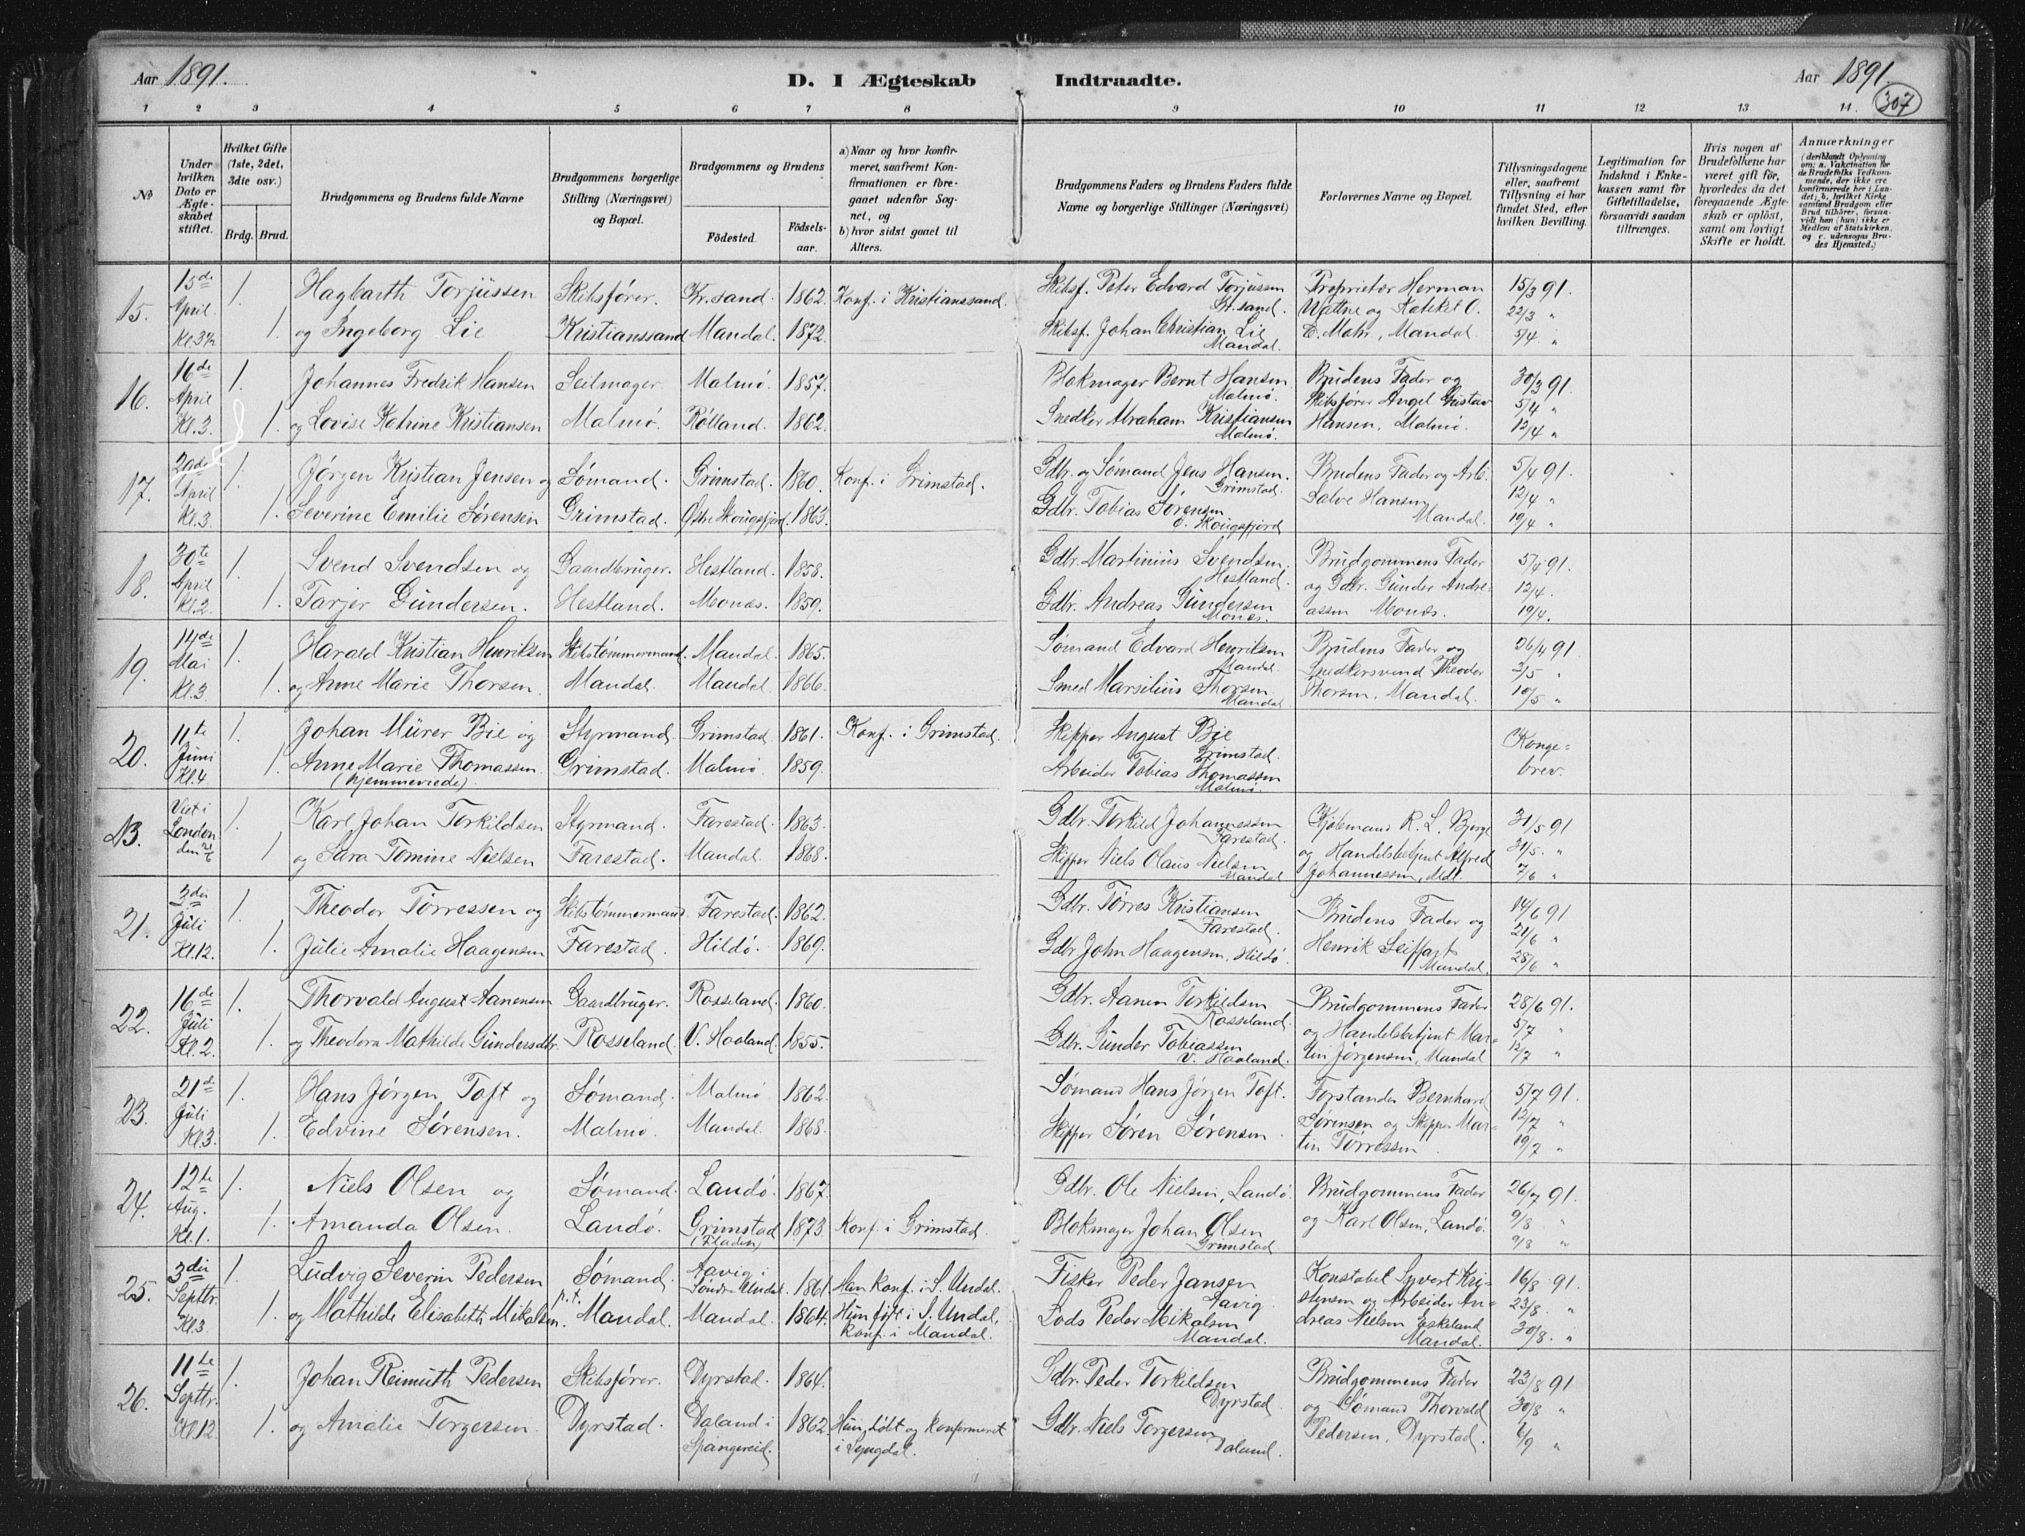 Aar 1891.
D. I Ægteskab Indtraadte.
Aar 1891.
307
1 2 3 4 5 6 7 8 9 10 11 12 13 14.
No
Under hvilken Dato er Ægteskabet stiftet.
Hvilket Gifte (1ste, 2det, 3die osv.)
Brdg. Brud.
Brudgommens og Brudens fulde Navne
Brudgommens borgerlige Stilling (Næringsvei) og Bopæl.
Brudgommens og Brudens
Födested.
Födsels-aar.
a) Naar og hvor konfirmeret, saafremt Konfirmationen er foregaaet udenfor Sognet, og
b) hvor sidst gaaet til Alters.
Brudgommens Faders og Brudens Faders fulde Navne og borgerlige Stillinger (Næringsvei)
Forlovernes Navne og Bopæl.
Tillysningsdagene eller, saafremt Tillysning ei har fundet Sted, efter hvilken Bevilling.
Legitimation for Indskud i Enkekassen samt for Giftetilladelse, forsaavidt saadan tiltrænges.
Hvis nogen af Brudefolkene har været gift før, hvorledes da det foregaaende Ægteskab er opløst, samt om lovligt Skifte er holdt.
Anmærkninger
(deriblandt Oplysning om: a. Vakcination for de Brudefolks Vedkommende, der ikke ere konfirmerede her i Landet; b. hvilket Kirkesamfund Brudgom eller Brud tilhører, forsaavidt han (hun) ikke er Medlem af Statskirken, og c. udensogns Brudes Hjemsted.)
15. 15de April. Kl. 3½ 1. Hagbarth Torjussen Skibsfører. Kr.sand. 1862. Konf. i Kristianssand. Skibsf. Peter Edvard Torjussen Kr.sand. Proprietær Herman 15/3 91.
1. og Ingeborg Lie Kristianssand Mandal. 1872. Skibsf. Johan Christian Lie Mandal. Wattne og Kateket O. E. Mohr, Mandal. 22/3 " 5/4 "
16. 16de April Kl. 3. 1. Johannes Fredrik Hansen Seilmager. Malmø. 1857. Blokmager Bernt Hansen Malmø. Brudens Fader og 30/3 91.
1. og Lovise Katrine Kristiansen Malmø. Rölland. 1862. Snedker Abraham Kristiansen Malmø. Skibsfører Angel Gustav Hansen, Malmø. 5/4 " 12/4 "
17. 29de April Kl. 3 1. Jørgen Kristian Jensen og Sømand. Grimstad. 1860. Konf. i Grimstad. Gdbr. og Sømand Jens Hansen. Grimstad. Brudens Fader og Arb. 5/4 91.
1. Severine Emilie Sørensen Grimstad. Østre Skougsfjord. 1863. Gdbr. Tobias Sørensen ø. Skougsfjord Salve Hansen Mandal. 12/4 " 19/4 "
18. 30te April Kl. 2. 1. Svend Svendsen og Gaardbruger. Hestland. 1858. Gdbr. Martinius Svendsen, Hestland. Brudgommens Fader 5/4 91.
1. Tarjer Gundersen. Hestland. Mones. 1859. Gdbr. Andreas Gundersen Mones. og Gdbr. Gunder Andreassen Mones. 12/4. 19/4.
19. 14de Mai Kl. 3 1. Harald Kristian Henriksen Skibstømmermand. Mandal. 1865. Sømand Edvard Henriksen Mandal. Brudens Fader og 26/4 91.
1. og Anne Marie Thorsen. Mandal. Mandal. 1866. Smed Marsilius Thorsen Mandal Snedkersvend Theodor Thorsen, Mandal. 3/5 " 10/5 "
20. 11te Juni Kl. 4 1. Johan Mürer Bie og Styrmand. Grimstad. 1861. Konf. i Grimstad. Skipper August Bie Grimstad. Konge-
1. Anne Marie Thomassen. (hjemmeviede). Grimstad. Malmø. 1859. Arbeider Tobias Thomassen Malmø. brev.
23. Viet i London den 21/6 1. Karl Johan Torkildsen Styrmand. Farestad. 1863. Gdbr. Torkild Johannessen Farestad. Kjøbmand R. L. Bjerge 31/5 91
1 og Sara Tomine Nielsen Farestad. Mandal. 1868. Skipper Niels Olaus Nielsen Mandal og Handelsbetjent Alfred Johannessen, Mdl. 31/5. " 7/6 "
21. 3die Juli Kl. 12. 1. Theodor Tørressen og Skibstømmermand Farestad. 1862. Gdbr. Tørres Kristiansen Farestad. Brudens Fader og 14/6 91
1. Julie Amalie Haagensen Farestad. Hildø. 1869. Gdbr John Haagensen, Hildø. Henrik Seiffart Mandal. 21/6 " 28/6 "
22. 16de Juli Kl. 2. 1. Thorvald August Aanensen Gaardbruger. Rosseland. 1860. Gdbr. Aanen Torkildsen Rosseland. Brudgommens Fader 28/6 91.
1. og Theodora Mathilde Gundersdtr. Rosseland. V. Haaland. 1855. Gdbr. Gunder Tobiassen V. Haaland. og Handelsbetjent Martin Jørgensen, Mandal 5/7 " 12/7 "
23. 21de Juli Kl. 3. 1. Hans Jørgen Toft og Sømand. Malmø 1862. Sømand Hans Jørgen Toft. Forstander Bernhard 5/7 91.
1. Edvine Sørensen. Malmø. Mandal. 1868. Skipper Søren Sørensen. Sørensen og Skipper Martin Tørressen. 12/7 " 19/7 "
24. 12te Aug. Kl. 1. 1. Niels Olsen og Sømand. Landø. 1867. Gdbr. Ole Nielsen, Landø. Brudgommens Fader 26/7 91.
1. Amanda Olsen. Landø. Grimstad (Fladen) 1873. Konf. i Grimstad. Blokmager Johan Olsen Grimstad og Karl Olsen, Landø. 9/8 " 9/8 "
25. 3die Septbr. Kl. 3 1. Ludvig Severin Pedersen Sømand. Aavig i Søndre Undal. 1861. Han konf. i S. Undal. Fisker Peder Jansen Aavig. Konstabel Syvert Kri- 16/8 91.
1. og Mathilde Elisabeth Mikalsen. p.t. Mandal. Mandal. 1864. Hun født i S. Undal, konf. i Mandal. Lods Peder Mikalsen Mandal. stensen og Arbeider Andreas Nielsen Eskeland Mandal. 23/8. " 30/8. "
26. 11te Septbr. Kl. 12. 1. Johan Reimuth Pedersen Skibsfører. Dyrstad. 1864. Gdbr. Peder Torkildsen Dyrstad. Brudgommens Fader 23/8 91
1. og Amalie Torgersen. Dyrstad. Daland i Spangereid. 1862. Hun døbt og konfirmeret i Lyngdal. Gdbr. Niels Torgersen Daland. og Sømand Thorvald Pedersen, Dyrstad. 30/8 " 6/9 "